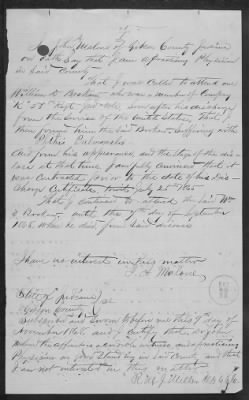 I John Malone of Gibson County Indiana
on Oath say that I am a practicing Physician
in said County
That I was Called to attend one
William R. who was a member of Company
K 58th Regt Ind Vols. soon after his discharge
from the Service of the United States, That I
then found him the said suffering with
Pthisis Pulmonalis
And from his appearance, and the stage of the dis-
ease at that time, I am fully convinced that it
was contracted prior to the date of his Dis-
charge Certificate, July 25th 1865
That I continued to attend the said Wm
R. until the 7th day of September
1868 when he died from said disease
I have no interest in this matter
Malone
State of Indiana
Gibson County
Subscribed and Sworn to before me this 9 day of
November 1868 and I Certify that
Malone the affiant is a credible witness and a practicing
Physician in good standing in said County, and that
I am not interested in this matter